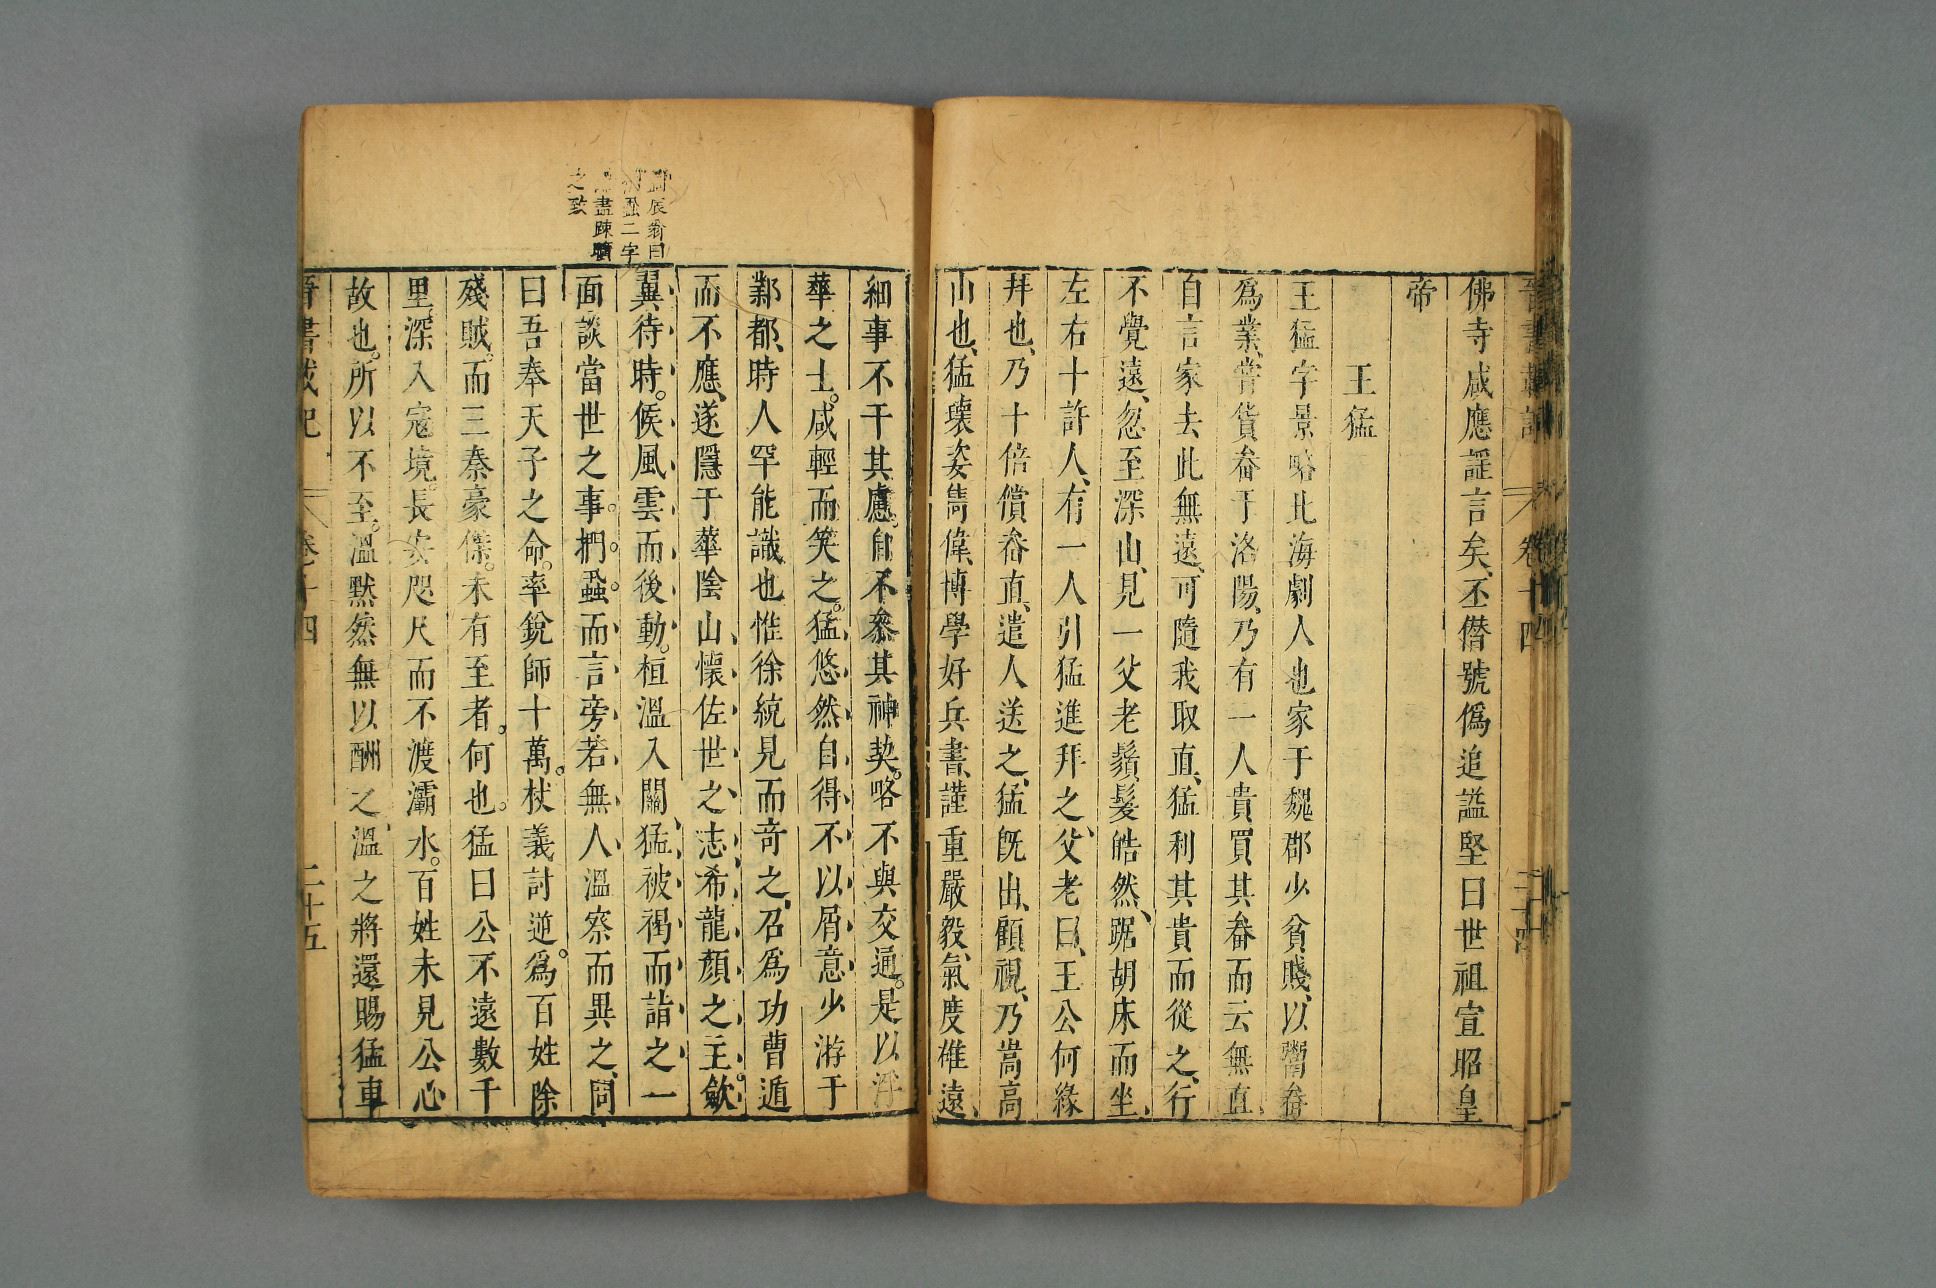 佛寺咸應謡言矣、丕僭號僞追謚堅曰世祖宣昭皇
帝
王猛
王猛字景略北海劇人也家于魏郡少貧賤、以鬻畚
爲業、嘗貨畚于洛陽、乃有一人貴買其畚而云無直
自言家去此無遠、可隨我取直、猛利其貴而從之、行
不覺遠、忽至深山、見一父老鬚髮皓然、踞胡床而坐、
左右十許人、有一人引猛進拜之、父老曰、王公何緣
拜也、乃十倍償畚直、遣人送之、猛旣出、顧視、乃嵩高
山也、猛瓌姿雋偉、博學好兵書、謹重嚴毅、氣度雄遠、
細事不干其慮。自不參其神契。略不與交通。是以浮
華之士。咸輕而笑之。猛悠然自得、不以屑意少游于
鄴都、時人罕能識也惟徐統見而奇之、召爲功曹遁
而不應、遂隱于華陰山、懷佐世之志希龍顏之主。歛
翼待時。候風雲而後動。桓溫入關、猛被褐而詣之一
面談當世之事。捫。蝨。而言旁若無人溫察而異之、問
曰吾奉天子之命。率銳師十萬。杖義討逆。爲百姓除
殘賊。而三秦豪傑。未有至者。何也。猛曰公不遠數千
里、深入寇境。長安咫尺而不渡灞水。百姓未見公心
故也。所以不至。溫默然無以酬之、溫之將還賜猛車
辰翁曰
蝨二字
盡踈曠
之致
卷十四
二十五